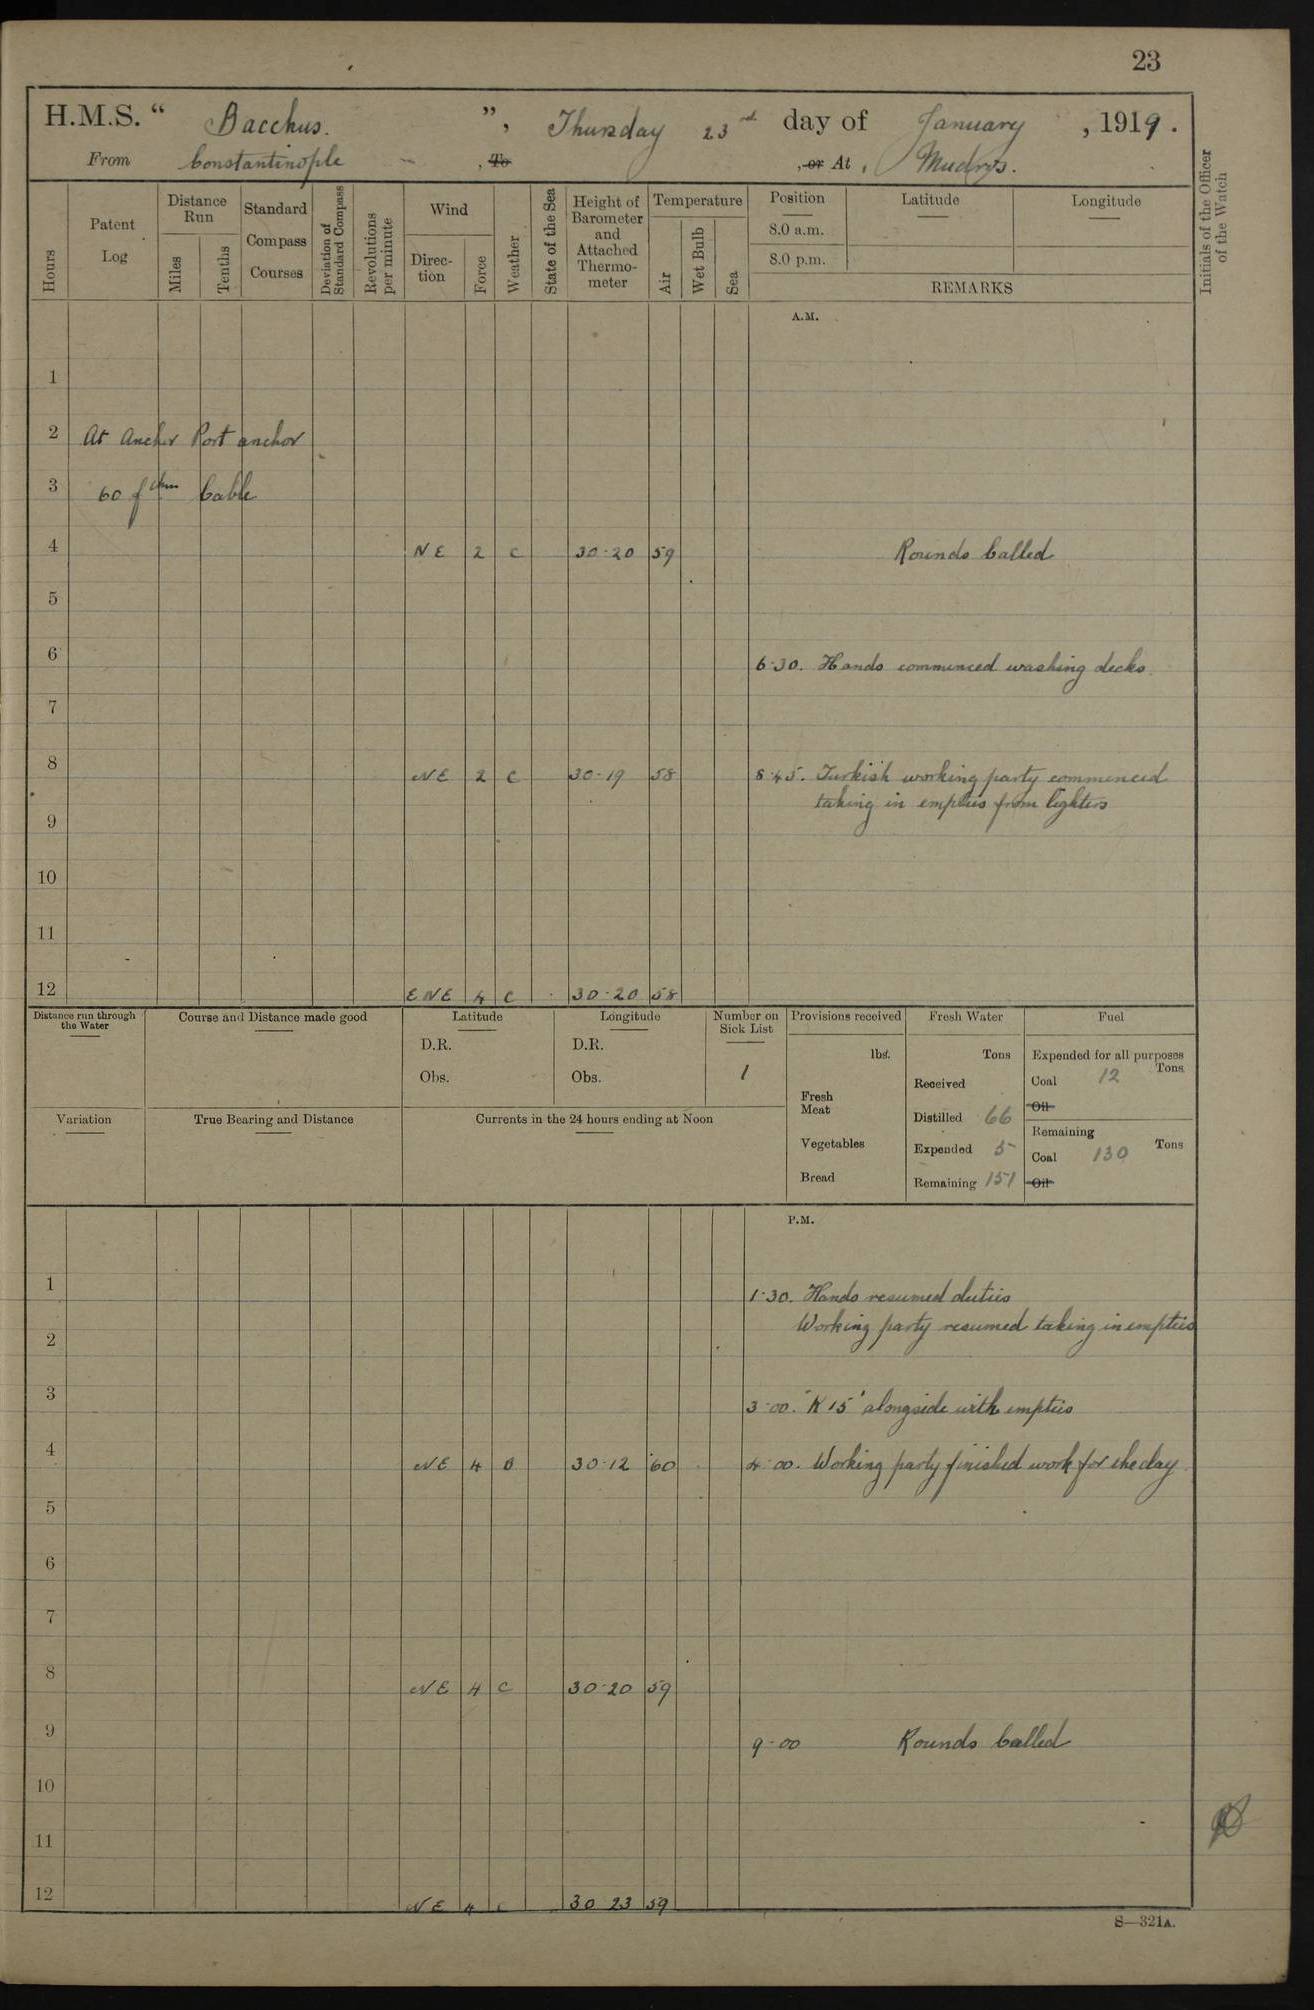 23
H.M.S. “ Bacchus. ”, Thursday 23rd day of January, 1919.
From Constantinople , To , or At , Mudros.
Hours
Patent Log
Distance Run
Miles
Tenths
Standard Compass Courses
Deviation of Standard Compass
Revolutions per minute
Wind
Direction
Force
Weather
State of the Sea
Height of Barometer and Attached Thermometer
Temperature
Air
Wet Bulb
Sea
Position
8.0 a.m.
8.0 p.m.
Latitude
Longitude
REMARKS
Initials of the Officer of the Watch
A.M.
1
2 At Anchor Port anchor
3 60 fthm Cable
4 NE 2 C 30·20 59 Rounds Called
5
6 6·30. Hands commenced washing decks.
7
8 NE 2 C 30·19 58 8·45. Turkish working party commenced
taking in empties from lighters
9
10
11
12 ENE 4 C 30·20 58
Distance run through the Water
Course and Distance made good
Latitude
D.R.
Obs.
Longitude
D.R.
Obs.
Number on Sick List
1
Provisions received
lbs.
Fresh Meat
Vegetables
Bread
Fresh Water
Tons
Received
Distilled 66
Expended 5
Remaining 151
Fuel
Expended for all purposes
Tons
Coal 12
Oil
Remaining
Tons
Coal 130
Oil
Variation
True Bearing and Distance
Currents in the 24 hours ending at Noon
P.M.
1 1·30. Hands resumed duties
Working party resumed taking in empties
2
3 3·00. "K 15" alongside with empties
4 NE 4 B 30·12 60 4·00. Working party finished work for the day
5
6
7
8 NE 4 C 30·20 59
9 9·00 Rounds Called
10
11
12 NE 4 C 30 23 59
S—321A.